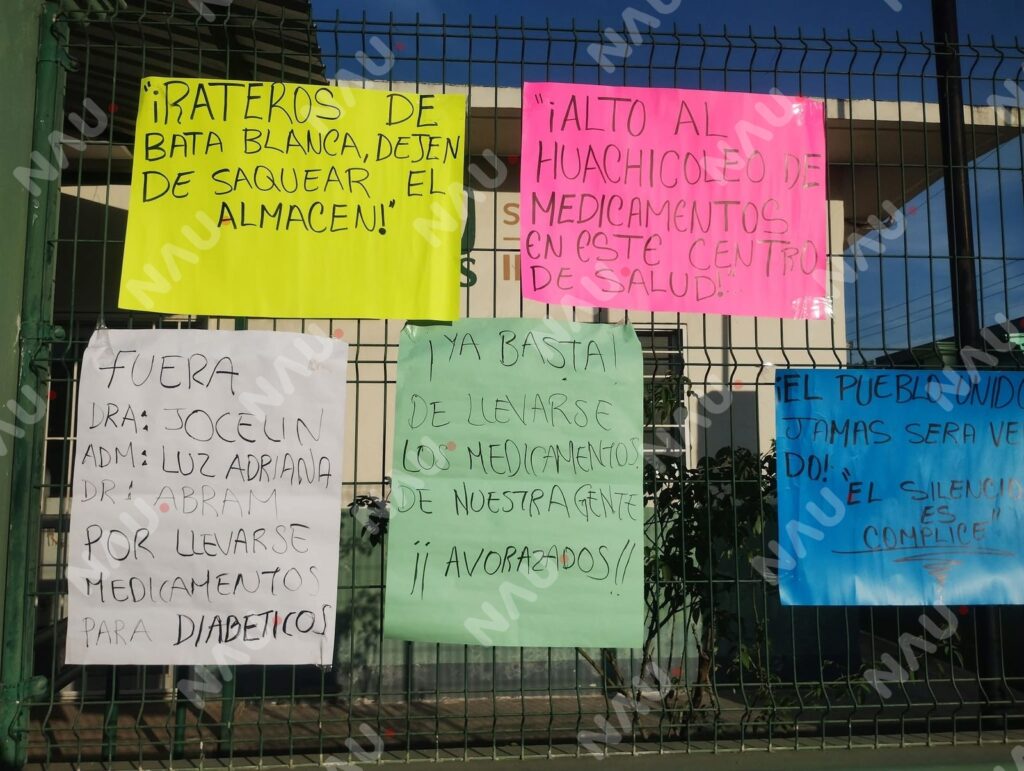 "¡RATEROS DE
BATA BLANCA, DEJEN
DE SAQUEAR EL
ALMACEN!"
"¡ALTO AL
HUACHICOLEO DE
MEDICAMENTOS
EN ESTE CENTRO
DE SALUD!"
FUERA
DRA: JOCELIN
ADM: LUZ ADRIANA
DR: ABRAM
POR LLEVARSE
MEDICAMENTOS
PARA DIABETICOS
¡YA BASTA!
DE LLEVARSE
LOS MEDICAMENTOS
DE NUESTRA GENTE
¡¡ AVORAZADOS!!
¡EL PUEBLO UNIDO
JAMAS SERA VE
DO!
"EL SILENCIO
ES
COMPLICE"
NAU